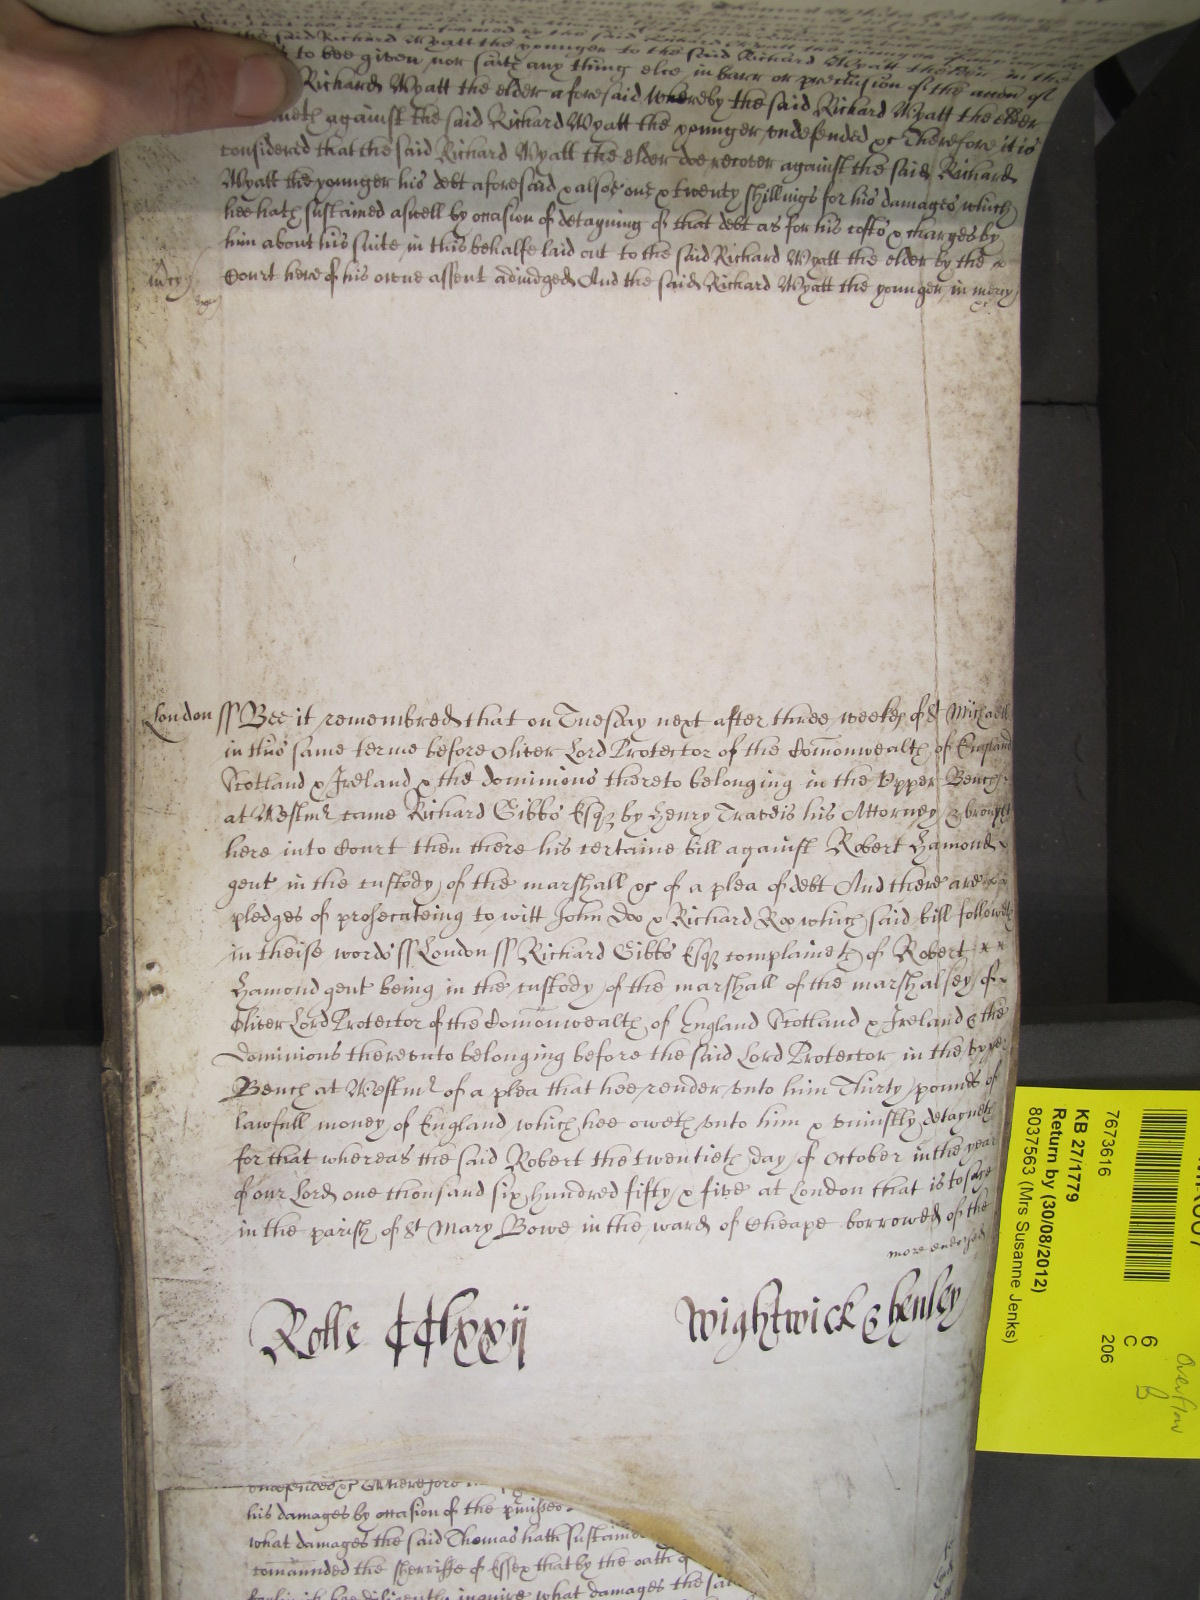 the said Richard Wyatt the younger to the said Richard Wyatt the elder in the
to bee given nor saith any thing else in barr or preclusion of the accon of
Richard Wyatt the elder aforesaid whereby the said Richard Wyatt the elder
against the said Richard Wyatt the younger undefended &c Therefore it is
considered that the said Richard Wyatt the elder doe recover against the said Richard
Wyatt the younger his debt aforesaid & alsoe one & twenty shillings for his damages which
hee hath sustained aswell by occasion of detayning of that debt as for his costs & charges by
him about his suite in this behalfe laid out to the said Richard Wyatt the elder by the
Court here of his owne assent adiudged And the said Richard Wyatt the younger in mercy
&c
mcy
London ss Bee it remembred that on Tuesday next after three weekes of St Michaell
in this same terme before Oliver Lord Protector of the Comonwealth of England
Scotland & Ireland & the dominions thereto belonging in the Upper Bench
at Westmr came Richard Gibbs Esqr by Henry Travers his Attorney & brought
here into Court then there his certaine bill against Robert Hamond
gent in the custody of the marshall &c of a plea of debt And there are
pledges of prosecuteing to witt John Doo & Richard Roo which said bill followeth
in theise words ss London ss Richard Gibbs Esqr complaineth of Robert
Hamond gent being in the custody of the marshall of the marshalsey of
Oliver Lord Protector of the Comonwealth of England Scotland & Ireland & the
Dominions thereunto belonging before the said Lord Protector in the upper
Bench at Westmr of a plea that hee render unto him Thirty pounds of
lawfull money of England which hee oweth unto him & uniustly detayneth
for that whereas the said Robert the twentieth day of October in the year
of our Lord one thousand six hundred fifty & five at London that is to saye
in the parish of St Mary Bowe in the ward of Cheape borrowed of the
more endorsed
Rolle CClxxij Wightwick & henley
his damages by occasion of the pmisses
what damages the said Thomas hath sustained
comaunded the Sherriffe of Essex that by the oath of
hee diligently inquire what damages the said
7673616
KB 27/1779
Return by (30/08/2012)
8037563 (Mrs Susanne Jenks)
6
C
206
Overflow
B